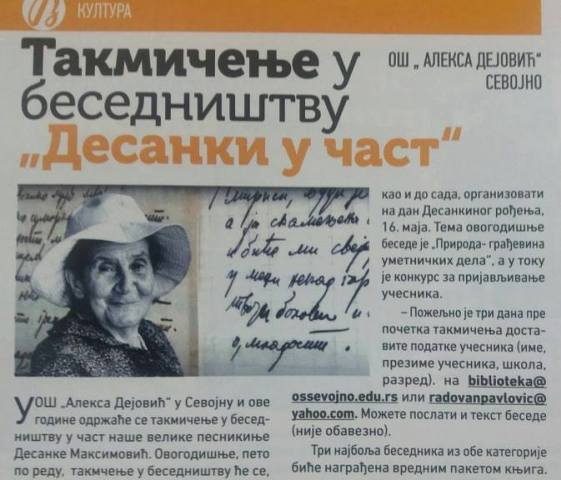 КУЛТУРА
Такмичење у
беседништву
„Десанки у част“
ОШ „ АЛЕКСА ДЕЈОВИЋ“
СЕВОЈНО
У ОШ „Алекса Дејовић“ у Севојну и ове
године одржаће се такмичење у бесед-
ништву у част наше велике песникиње
Десанке Максимовић. Овогодишње, пето
по реду, такмчење у беседништву ће се,
као и до сада, организовати
на дан Десанкиног рођења,
16. маја. Тема овогодишње
беседе је „Природа- грађевина
уметничких дела“, а у току
је конкурс за пријављивање
учесника.
– Пожељно је три дана пре
почетка такмичења доста-
вите податке учесника (име,
презиме учесника, школа,
разред). на biblioteka@
ossevojno.edu.rs или radovanpavlovic@
yahoo.com. Можете послати и текст беседе
(није обавезно).
Три најбоља беседника из обе категорије
биће награђена вредним пакетом књига.